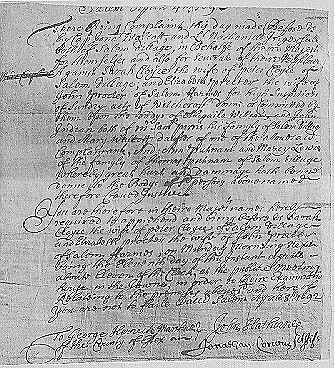 There Being Complaint this day made before us
by capt Walcott, and Lt Nathaniell
both of Salem Village, in Behalfe of theire Majesties
for themselfes and also for severall of their Neighbours
Against Sarah Cloyce the wife of peter Cloyce of
Salem Village; and the wife of
John Proctor of Salem farmes for high Suspition
of Sundry acts of Witchcraft donne or committed by
them upon the bodys of Abigail Williams, and John
Indian both of mr Sam parris his family of Salem village
and Mary Walcot daughter of one of the abovesaid
Complainants, And Ann Putnam and Mercy Lewis
of the famyly of Thomas Putnam of Salem Village
whereby great hurt and dammage hath beene
donne to the Bodys of sd persons above named
therefore Craved Justice
You are therefore in theire Majests names hereby
required to apprehend and bring before us Sarah
Cloyce the wife of peter Cloyce of Salem Village
and Elizabeth proctor the wife of John Proctor
of Salem farmes on Munday Morneing Next
being the Eleventh day of this Instant Aprill
aboute Eleven of the Clock, at the publike Meeting
house in the Towne, in order to theire Examination
Relateing to the premesis and here of
You are not to faile Dated Salem Aprill 8th 1692
To George Herrick Marshall John Hathorne
of the County of Essex Jonathan Corwin